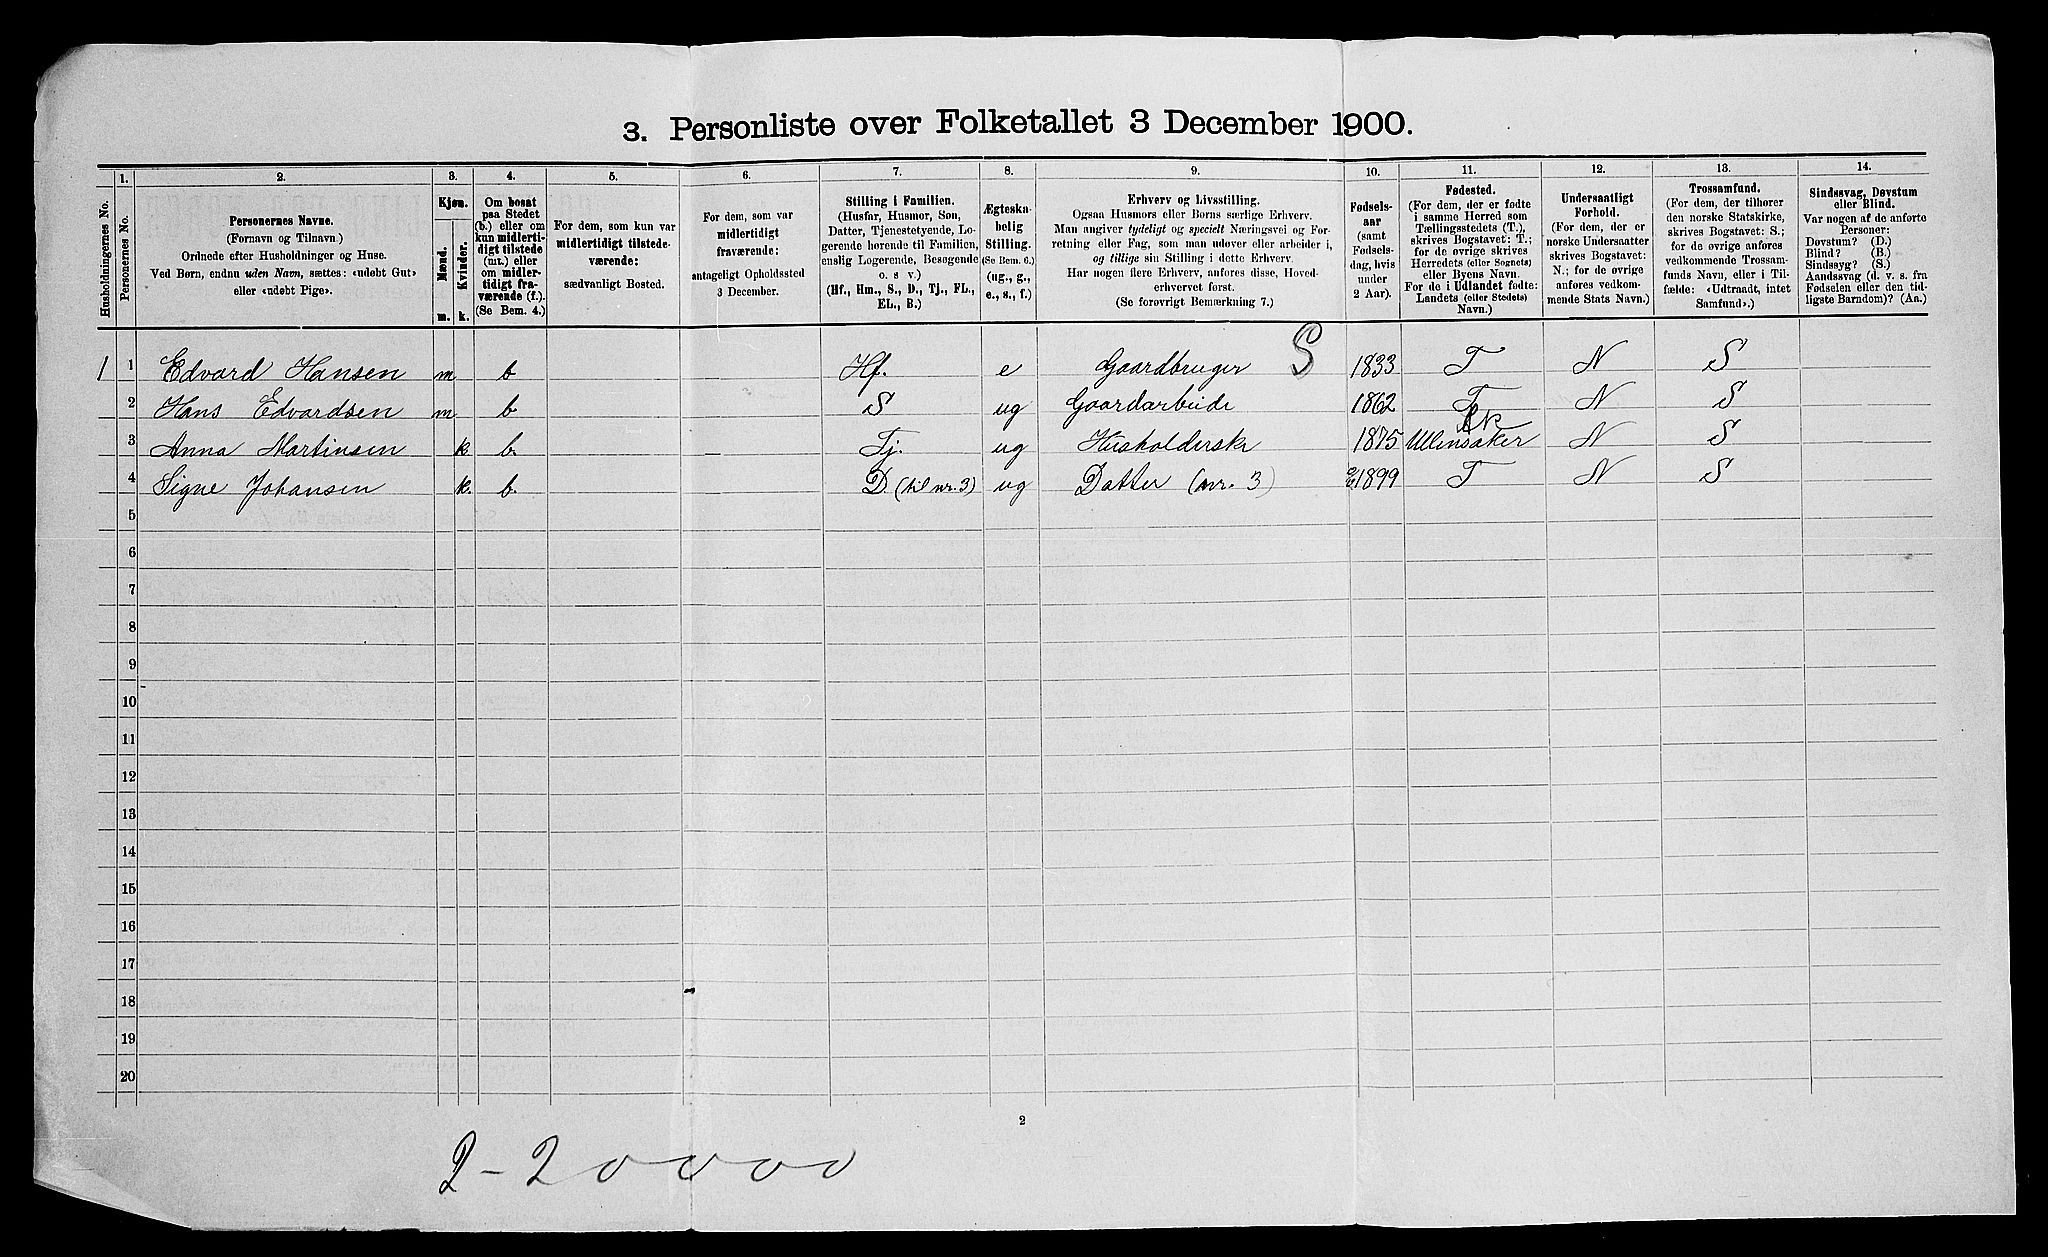 3. Personliste over Folketallet 3 December 1900.
Husholdningernes No.
1.
Personernes No.
2.
Personernes Navne.
(Fornavn og Tilnavn.)
Ordnede efter Husholdninger og Huse.
Ved Børn, endnu uden Navn, sættes: «udøbt Gut»
eller «udøbt Pige».
3.
Kjøn.
Mænd.
Kvinder.
m. k.
4.
Om bosat
paa Stedet
(b.) eller om
kun midlerti-
digt tilstede
(mt.) eller
om midler-
tidigt fra-
værende (f.).
(Se Bem. 4.)
5.
For dem, som kun var
midlertidigt tilstede-
værende:
sædvanligt Bosted.
6.
For dem, som var
midlertidigt
fraværende:
antageligt Opholdssted
3 December.
7.
Stilling i Familien.
(Husfar, Husmor, Søn,
Datter, Tjenestetyende, Lo-
gerende hørende til Familien,
enslig Logerende, Besøgende
o. s v.)
(Hf., Hm., S., D., Tj., FL.,
EL., B.)
8.
Ægteska-
belig
Stilling.
(Se Bem. 6.)
(ug., g.,
e., s., f.)
9.
Erhverv og Livsstilling.
Ogsaa Husmors eller Børns særlige Erhverv.
Man angiver tydeligt og specielt Næringsvei og For-
retning eller Fag, som man udøver eller arbeider i,
og tillige sin Stilling i dette Erhverv.
Har nogen flere Erhverv, anføres disse, Hoved-
erhvervet først.
(Se forøvrigt Bemærkning 7.)
10.
Fødsels-
aar
(samt
Fødsels-
dag, hvis
under
2 Aar).
11.
Fødested.
(For dem, der er fødte
i samme Herred som
Tællingsstedets (T.),
skrives Bogstavet: T.;
for de øvrige skrives
Herredets (eller Sognets)
eller Byens Navn.
For de i Udlandet fødte:
Landets (eller Stedets)
Navn.)
12.
Undersaatligt
Forhold.
(For dem, der er
norske Undersaatter
skrives Bogstavet:
N.; for de øvrige
anføres vedkom-
mende Stats Navn.)
13.
Trossamfund.
(For dem, der tilhører
den norske Statskirke,
skrives Bogstavet: S.;
for de øvrige anføres
vedkommende Trossam-
funds Navn, eller i Til-
fælde: «Udtraadt, intet
Samfund».)
14.
Sindssvag, Døvstum
eller Blind.
Var nogen af de anførte
Personer:
Døvstum? (D.)
Blind? (B.)
Sindssyg? (S.)
Aandssvag (d. v. s. fra
Fødselen eller den tid-
ligste Barndom)? (Aa.)
1 1 Edvard Hansen m b Hf. e Gaardbruger S 1833 T N S
2 Hans Edvardsen m b. S ug Gaardarbeide 1862 T N S
3 Anna Martinsen k b. Tj. ug Husholderske 1875 Ullensaker N S
4 Signe Johansen k. b. D. (til nr. 3) ug Datter (nr. 3) 1899 T N S
5
6
7
8
9
10
11
12
13
14
15
16
17
18
19
20
2
2-20000